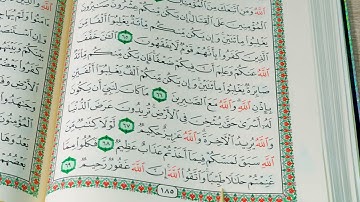 ٱللَّهُ وَمَنِ ٱتَّبَعَكَ مِنَ ٱلْمُؤْمِنِينَ
ٱلْمُؤْمِنِينَ عَلَى ٱلْقِتَالِ إِن يَكُن مِّنكُمْ عِشْرُونَ صَٰبِرُونَ
يَغْلِبُوا۟ مِا۟ئَتَيْنِ وَإِن يَكُن مِّنكُم مِّا۟ئَةٌ يَغْلِبُوٓا۟ أَلْفًا مِّنَ
ٱلَّذِينَ كَفَرُوا۟ بِأَنَّهُمْ قَوْمٌ لَّا يَفْقَهُونَ ٦٥ ٱلْـَٰٔنَ خَفَّفَ
ٱللَّهُ عَنكُمْ وَعَلِمَ أَنَّ فِيكُمْ ضَعْفًا فَإِن يَكُن مِّنكُم مِّا۟ئَةٌ
صَابِرَةٌ يَغْلِبُوا۟ مِا۟ئَتَيْنِ وَإِن يَكُن مِّنكُمْ أَلْفٌ يَغْلِبُوٓا۟ أَلْفَيْنِ
بِإِذْنِ ٱللَّهِ وَٱللَّهُ مَعَ ٱلصَّٰبِرِينَ ٦٦ مَا كَانَ لِنَبِيٍّ أَن يَكُونَ
لَهُۥٓ أَسْرَىٰ حَتَّىٰ يُثْخِنَ فِى ٱلْأَرْضِ تُرِيدُونَ عَرَضَ ٱلدُّنْيَا
وَٱللَّهُ يُرِيدُ ٱلْءَاخِرَةَ وَٱللَّهُ عَزِيزٌ حَكِيمٌ ٦٧ لَّوْلَا كِتَٰبٌ مِّنَ
ٱللَّهِ سَبَقَ لَمَسَّكُمْ فِيمَآ أَخَذْتُمْ عَذَابٌ عَظِيمٌ ٦٨ فَكُلُوا۟ مِمَّا
غَنِمْتُمْ حَلَٰلًا طَيِّبًا وَٱتَّقُوا۟ ٱللَّهَ إِنَّ ٱللَّهَ غَفُورٌ رَّحِيمٌ ٦٩
١٨٥